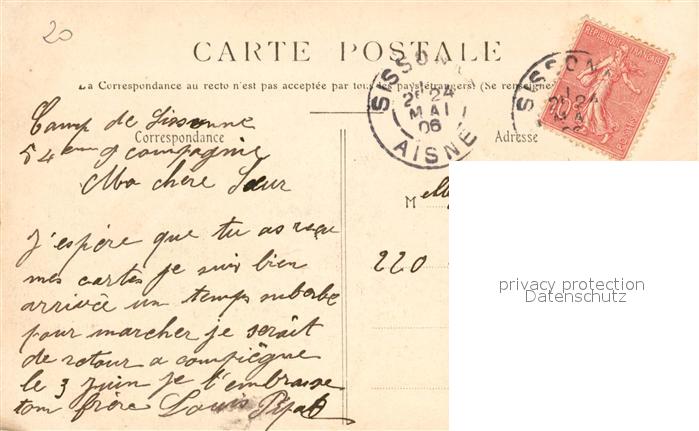 20
CARTE POSTALE
La Correspondance au recto n'est pas acceptée par tous les pays étrangers) (Se renseigner
SISSONNE
2E 24
MAI
06
AISNE
SISSONN
REPUBLIQUE FRANÇAISE
10
POSTES
Correspondance
Adresse
Camp de Sissonne
54eme 9 compagnie
Ma chere Sœur
J'espère que tu as reçu
mes cartes je suis bien
arrivée un temps suberbe
pour marcher je serait
de retour a compiègne
le 3 juin je t'embrasse
ton frère Louis
M
220
privacy protection
Datenschutz